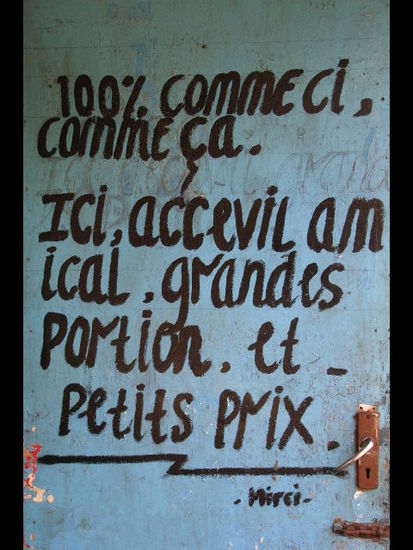 100% COMMECI,
COMMEÇA.
ICI, accevil am
ical, grandes
portion. et -
Petits PRIX.
- Mirci -